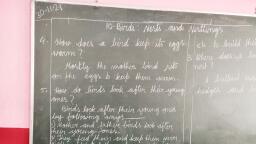 30-11-24
10 Birds: Nests and Nestlings
4. How does a bird keep its eggs warm?
Mostly the mother bird sits on the eggs to keep them warm.
5. How do birds look after their young ones?
Birds look after their young ones by following ways
1) Mother and father birds look after their young ones.
2) They feed their and keep them warm
to build their
3. Where does a
nest?
hedges and